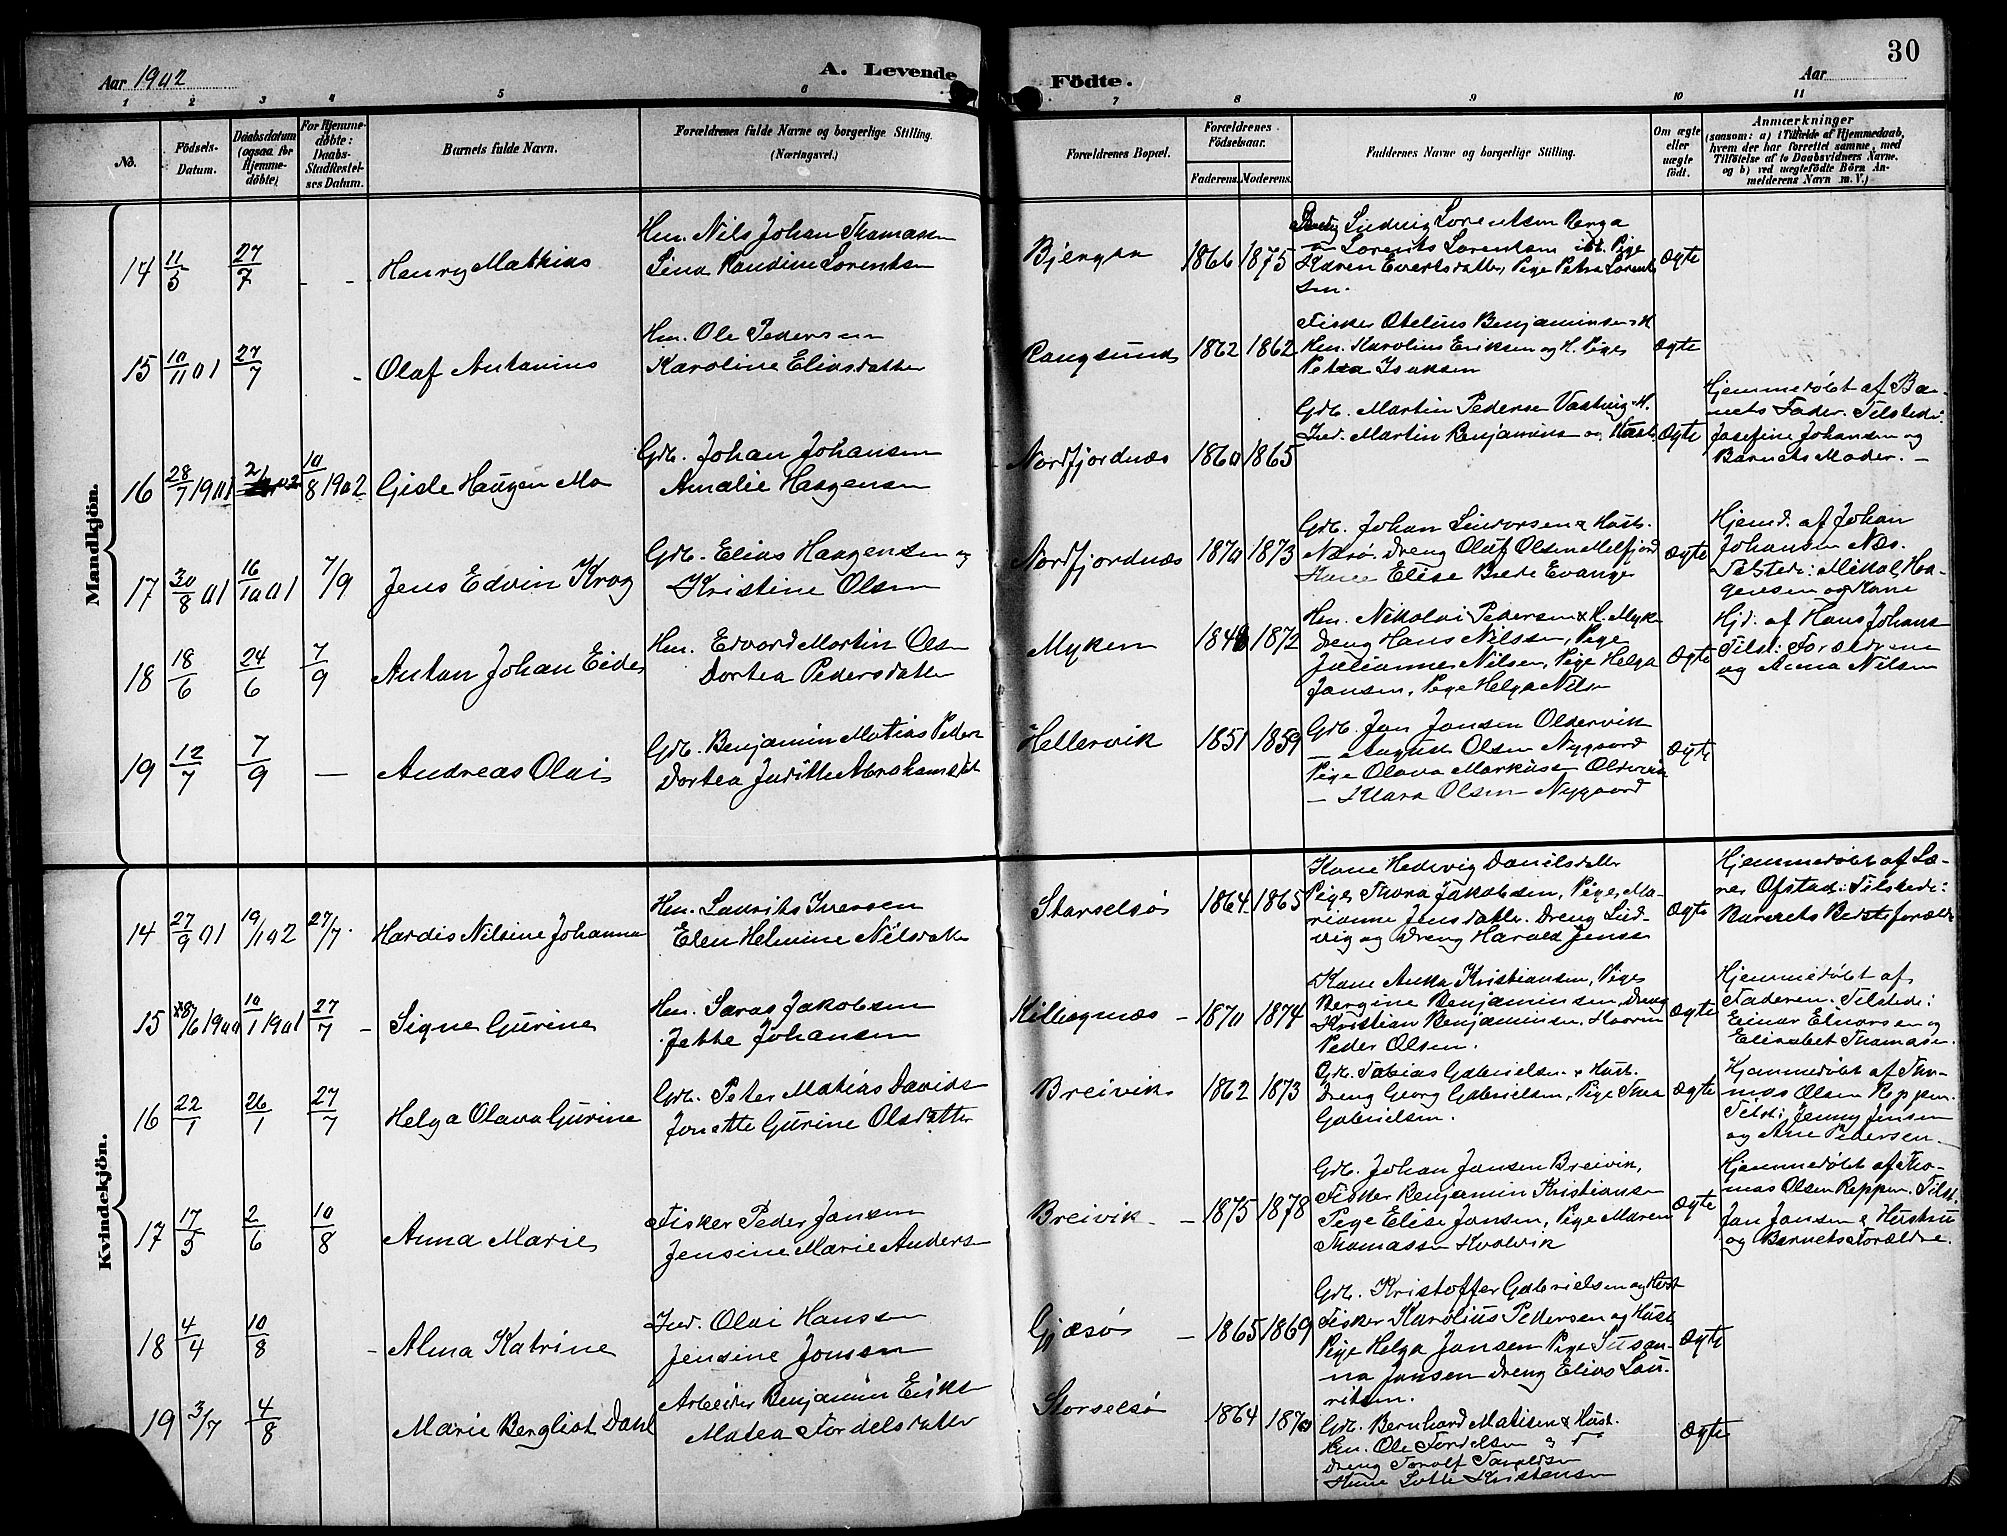 Aar 1902
A. Levende
Födte.
Aar
30
1 2 3 4 5 6 7 8 9 10 11
No.
Födsels-
Datum.
Daabsdatum
(ogsaa for
Hjemme-
døbte)
For Hjemme-
døbte:
Daabs-
Stadfæstel-
ses Datum.
Barnets fulde Navn.
Forældrenes fulde Navne og borgerlige Stilling.
(Næringsvei.)
Forældrenes Bopæl.
Forældrenes
Födselsaar.
Faderens. Moderens.
Faddernes Navne og borgerlige Stilling.
Om ægte
eller
uægte
født.
Anmærkninger
(saasom: a) i Tilfælde af Hjemmedaab,
hvem der har forrettet samme, med
Tilføielse af to Daabsvidners Navne.
og b) ved uægtefödte Börn An-
melderens Navn m. V.)
Mandkjön.
14 11/5 27/7 - - Henry Mathias
Hm. Nils Johan Thomassen
Lina Randine Lorentsen
Bjerga 1866 1875
Ludvig Lorentsen Berga
Lorents Lorentsen Pige
Karen Evertsdatter, Pige Petra Lorent
sen.
Ægte
15 10/11 01 27/7 - Olaf Antonius
Hm. Ole Pedersen
Karoline Eliasdatter
Rangsund 1862 1862
Fisker Otelius Benjaminsen & H
Hm. Karolius Eriksen og H. Pige
Petra Isaksen
Ægte
16 28/7 1901 10/8 1902 Gisle Haugen Mo
Gdb. Johan Johansen
Amalie Haagensen
Nordfjordnæs 1860 1865
Gdb. Martin Pedersen Vastvig & H.
Ind. Martin Benjamins og Hust.
Ægte
Hjemmedøbt af Bar-
nets Fader. Tilstede:
Josefine Johansen og
Barnets Moder. -
17 30/8 01 16/10 01 7/9 Jens Edvin Krog
Gdb. Elias Haagensen og
Kristine Olsen
Nordfjordnæs 1870 1873
Gdb. Johan Sivertsen & Hust.
Nærø. Dreng Oluf Olsen Melfjord
Elise Brede Evange
Ægte
Hjemd. af Johan
Johansen Næs.
Tilstede: Mikal Haa-
gensen og Kone
18 18/6 24/6 7/9 Anton Johan Eide
Hm. Edvard Martin Olsen
Dortea Pedersdatter
Myken 1848 1872
Hm. Nikolai Pedersen & H. Myken
Dreng Hans Nilssen, Pige
Julianne Nilsen, Pige Helga
Jansen, Pige Helga Nilsen
Ægte
Hjd. af Hans Johans
Tilst: Forældrene
og Anna Nilsen
19 12/7 7/9 - Andreas Olai
Gdb. Benjamin Matias Peders
Dortea Judithe Abrahamsdat
Hellervik 1851 1859
Gdb. Jan Jansen Oldervik
- August Olsen Nygaard
Pige Olava Markusse Oldervik
- Klara Olsen Nygaard
Ægte
Kvindekjön.
14 27/9 01 19/1 02 27/7 Hardis Nilsine Johanna
Hm. Laurits Iversen
Elen Helmine Nilsdatter
Storselsø 1864 1865
Kone Hedevig Danilsdatter
Pige Thora Jakobsen, Pige Ma-
rianne Jensdatter. Dreng Lud-
vig og Dreng Harald Jensen
Ægte
Hjemmedøbt af Læ-
rer Ofstad. Tilstede:
Barnets Bedsteforældre
15 1900 10/1 1901 27/7 - Signe Gurine
Hm. Saras Jakobsen
Jette Johansen
Killingnæs - 1870 1874
Kone Anna Kristiansen, Pige
Bergine Benjaminsen, Dreng
Kristian Benjaminsen,
Peder Olsen.
Ægte
Hjemmedøbt af
Faderen. Tilstede:
Einar Einarsen og
Elisabet Thomasen.
16 22/1 26/1 27/7 Helga Olava Gurine
Gdb. Peter Mathias Davids
Jonette Gurine Olsdatter
Breivik 1862 1873
Gdb. Tobias Gabrielsen & Hust.
Dreng Georg Gabrielsen, Pige Thea
Gabrielsen.
Ægte
Hjemmedøbt af Tho-
mas Olsen Reppen.
Tilst: Jenny Jensen
og Ane Pedersen.
17 17/5 2/6 10/8 Anna Marie
Fisker Peder Jansen
Jensine Marie Anders
Breivik - 1875 1878
Gdb. Johan Jansen Breivik,
Fisker Benjamin Kristiansen
Pige Elise Jansen, Pige Maren
Thomassen Kvalvik
Ægte
Hjemmedøbt af Tho-
mas Olsen Reppen. Tilst.
Jan Jansen & Hustru
og Barnets Forældre.
18 4/4 10/8 - Alma Katrine
Ind. Olai Hansen
Jensine Jonsen
Gjæsø - 1865 1869
Gdb. Kristoffer Gabrielsen og Hust
Fisker Karolius Pedersen og Hust
Pige Helga Jansen Pige Susan-
na Jansen Dreng Elias Lau-
ritsen.
Ægte
19 3/7 4/8 Marie Bergliot Dahl
Arbeider Benjamin Eriks
Matea Tordelsdatter
Storselsø 1864 1870
Gdb. Bernhard Matisen & Hust.
Hm. Ole Tordelsen
Dreng Torolf Toraldsen
Lotte Kristensen
Ægte